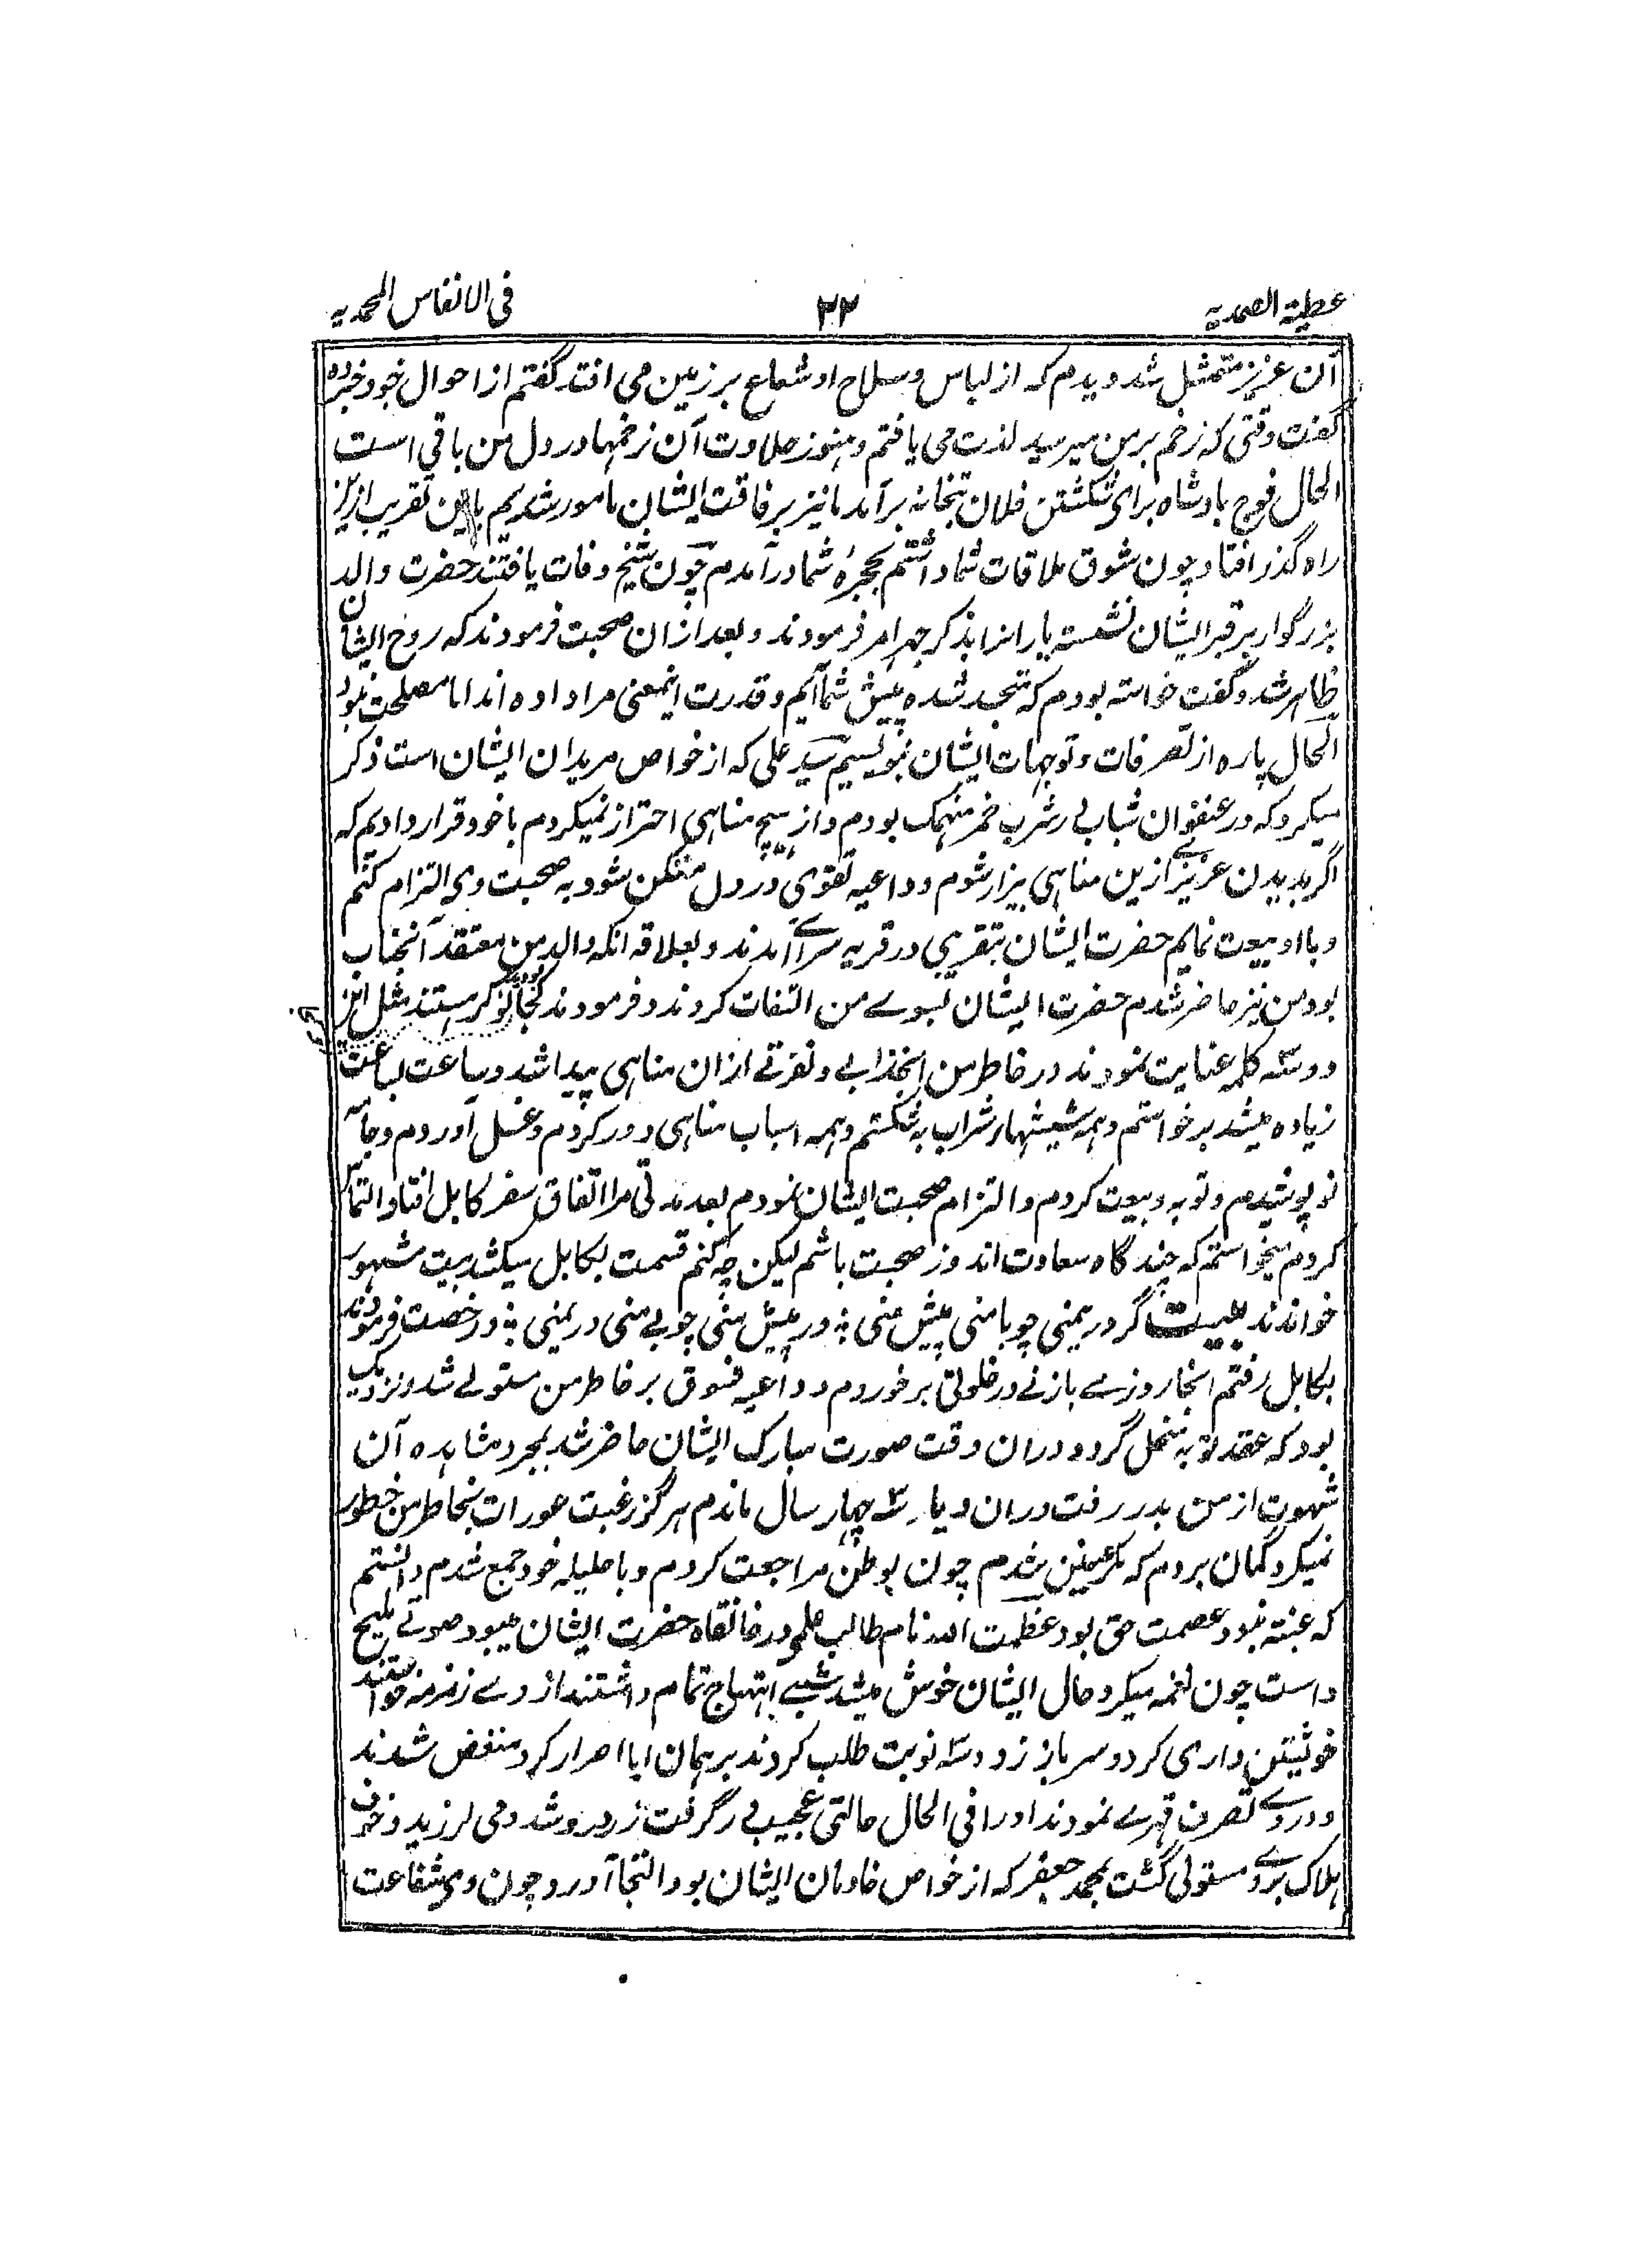 عطیة الصمدیه ۲۲ فی الانفاس المحمدیه
آن عزیز متمثل شد و یدم که از لباس و سلاح او شعاع بر زمین می افتد گفتم از احوال خود خبر ده
گفت وقتی که زخم بر من میرسید لذت می یافتم و هنوز حلاوت آن زخمها در دل من باقی است
الحال فوج بادشاه برای شکشتن فلان بتخانه بر آمد ما نیز برفاقت ایشان مامور شدیم باین تقریب ازین
راه گذر افتاد چون شوق ملاقات شما داشتم بحجرهٔ شما در آمدم چون شیخ وفات یافتند حضرت والد
بزرگوار بر قبر ایشان نشسته یارانرا بذکر جهر امر فرمودند و بعد ازان صحبت فرمودند که روح ایشان
ظاهر شد و گفت خواسته بودم که متجسد شده پیش شما آیم و قدرت اینمعنی مرا داده اند اما مصلحت نبود
الحال پاره از تصرفات و توجهات ایشان بنویسیم سید علی که از خواص مریدان ایشان است ذکر
میکرد که در عنفوان شباب بر شرب خمر منهمک بودم و از هیچ مناهی احتراز نمیکردم با خود قرار دادیم که
اگر بدیدن عزیزی ازین مناهی بیزار شوم و داعیه تقوی در دل متمکن شود به صحبت وی التزام کنم
و با او بیعت نمایم حضرت ایشان بتقریبی در قریه سرای آمدند و بعلاقه انکه والد من معتقد آنجناب
بود من نیز حاضر شدم حضرت ایشان بسوے من التفات کردند و فرمودند کجا بودید نوکر هستند مثل این
دو سه کلمه عنایت نمودند در خاطر من انجذابی و نفرتے ازان مناهی پیدا شد و ساعت بساعت
زیاده میشد برخواستم و همه شیشهاء شراب بشکستم و همه اسباب مناهی دور کردم و غسل آوردم و جامه
نو پوشیدم و توبه و بیعت کردم و التزام صحبت ایشان نمودم بعد مدتی مرا اتفاق سفر کابل افتاد التماس
کردم میخواستم که چند گاه سعادت اندوز صحبت باشم لیکن چه کنم قسمت بکابل میکشد بیت مشهور
خواندند بیت گر در یمنی چو با منی پیش منی ؛ ور پیش منی چو بی منی در یمنی ؛ و رخصت فرمودند
بکابل رفتم انجا روزے بازنے در خلوتی بر خوردم و داعیه فسوق بر خاطر من مستولے شد و نزدیک
بود که عقد توبه منحل گردد دران وقت صورت مبارک ایشان حاضر شد بمجرد مشاهده آن
شهوت از من بدر رفت دران دیار سه چهار سال ماندم هرگز رغبت عورات بخاطر من خطور
نمیکرد گمان بردم که مگر عنین شدم چون بوطن مراجعت کردم و با حلیله خود جمع شدم دانستم
که عنته نبود عصمت حق بود عظمت الله نام طالب علمی در خانقاه حضرت ایشان میبود صوتے ملیح
داست چون نغمه میکرد حال ایشان خوش میشد شبے ابتهاج تمام داشتند از وے زمزمه خواستند
خویشتن داری کرد و سر باز زد و سه نوبت طلب کردند بر همان ابا اصرار کرد منغص شدند
و در وے تصرف قهرے نمودند او را فی الحال حالتی عجیب در گرفت زرد رو شد و می لرزید و خوف
هلاک بر وے مستولی گشت بمحمد جعفر که از خواص خادمان ایشان بود التجا آورد و چون وی شفاعت